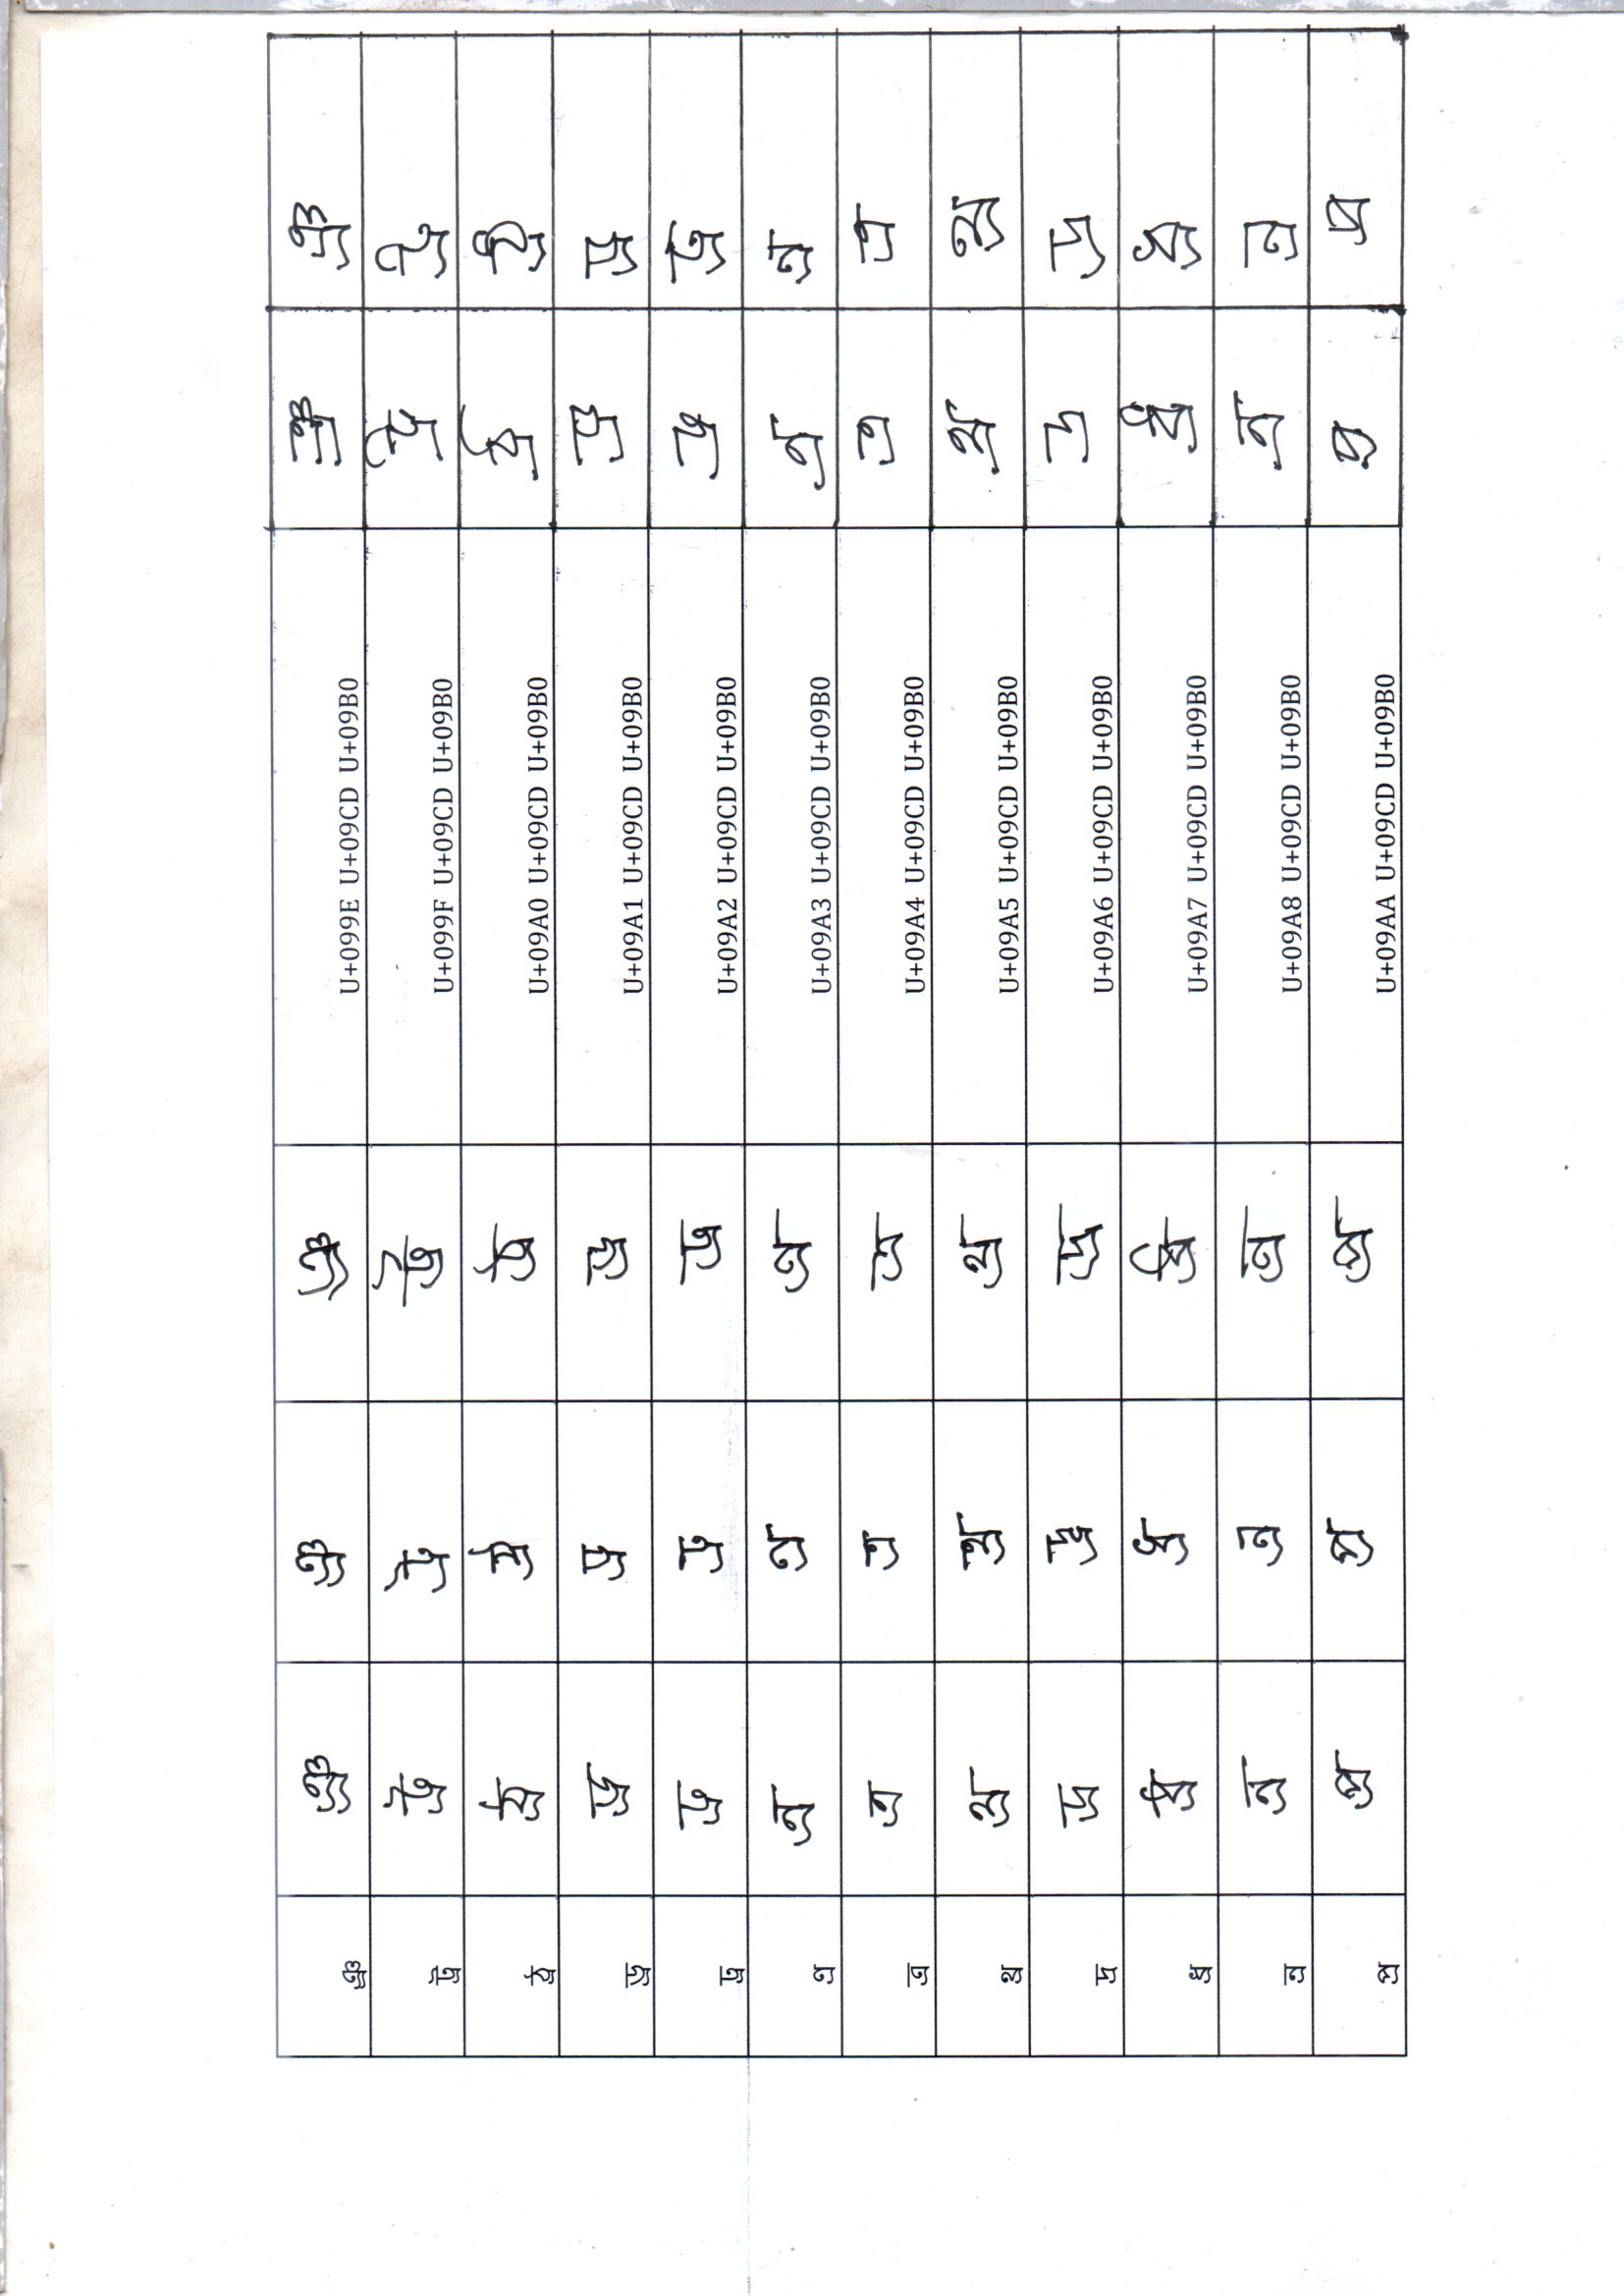 ঞ্র ঞ্র ঞ্র ঞ্র U+099E U+09CD U+09B0 ঞ্র ঞ্র
ট্র ট্র ট্র ট্র U+099F U+09CD U+09B0 ট্র ট্র
ঠ্র ঠ্র ঠ্র ঠ্র U+09A0 U+09CD U+09B0 ঠ্র ঠ্র
ড্র ড্র ড্র ড্র U+09A1 U+09CD U+09B0 ড্র ড্র
ঢ্র ঢ্র ঢ্র ঢ্র U+09A2 U+09CD U+09B0 ঢ্র ঢ্র
ণ্র ণ্র ণ্র ণ্র U+09A3 U+09CD U+09B0 ণ্র ণ্র
ত্র ত্র ত্র ত্র U+09A4 U+09CD U+09B0 ত্র ত্র
থ্র থ্র থ্র থ্র U+09A5 U+09CD U+09B0 থ্র থ্র
দ্র দ্র দ্র দ্র U+09A6 U+09CD U+09B0 দ্র দ্র
ধ্র ধ্র ধ্র ধ্র U+09A7 U+09CD U+09B0 ধ্র ধ্র
ন্র ন্র ন্র ন্র U+09A8 U+09CD U+09B0 ন্র ন্র
প্র প্র প্র প্র U+09AA U+09CD U+09B0 প্র প্র